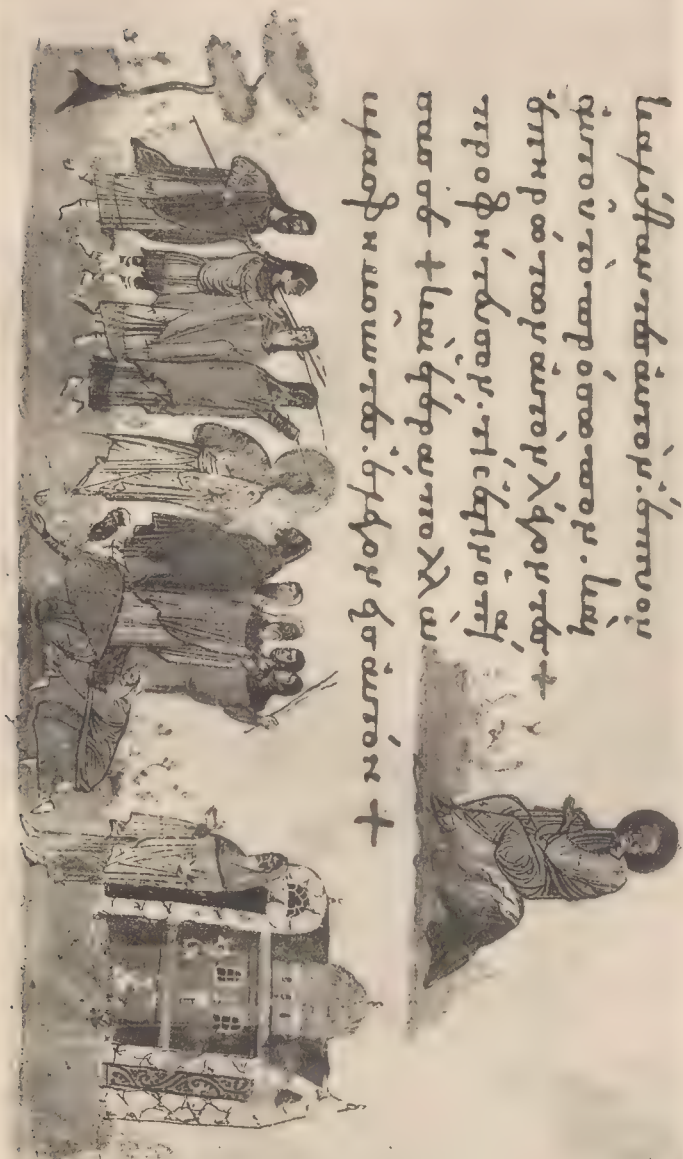 καλύψαντες αὐτὸν. ἔτυπτον
αὐτοῦ τὸ πρόσωπον. καὶ
ἐπηρώτων αὐτὸν λέγοντες +
προφήτευσον. τίς ἐστιν ὁ παί
σας σε + καὶ ἕτερα πολλὰ
βλασφημοῦντες. ἔλεγον εἰς αὐτόν +